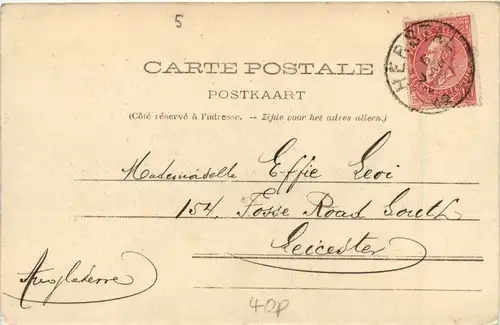 5
CARTE POSTALE
POSTKAART
(Côté réservé à l'adresse. -- Zijde voor het adres alleen.)
HERSTAL
Mademoiselle Effie Levi
154. Fosse Road South
Leicester
Angleterre
40p